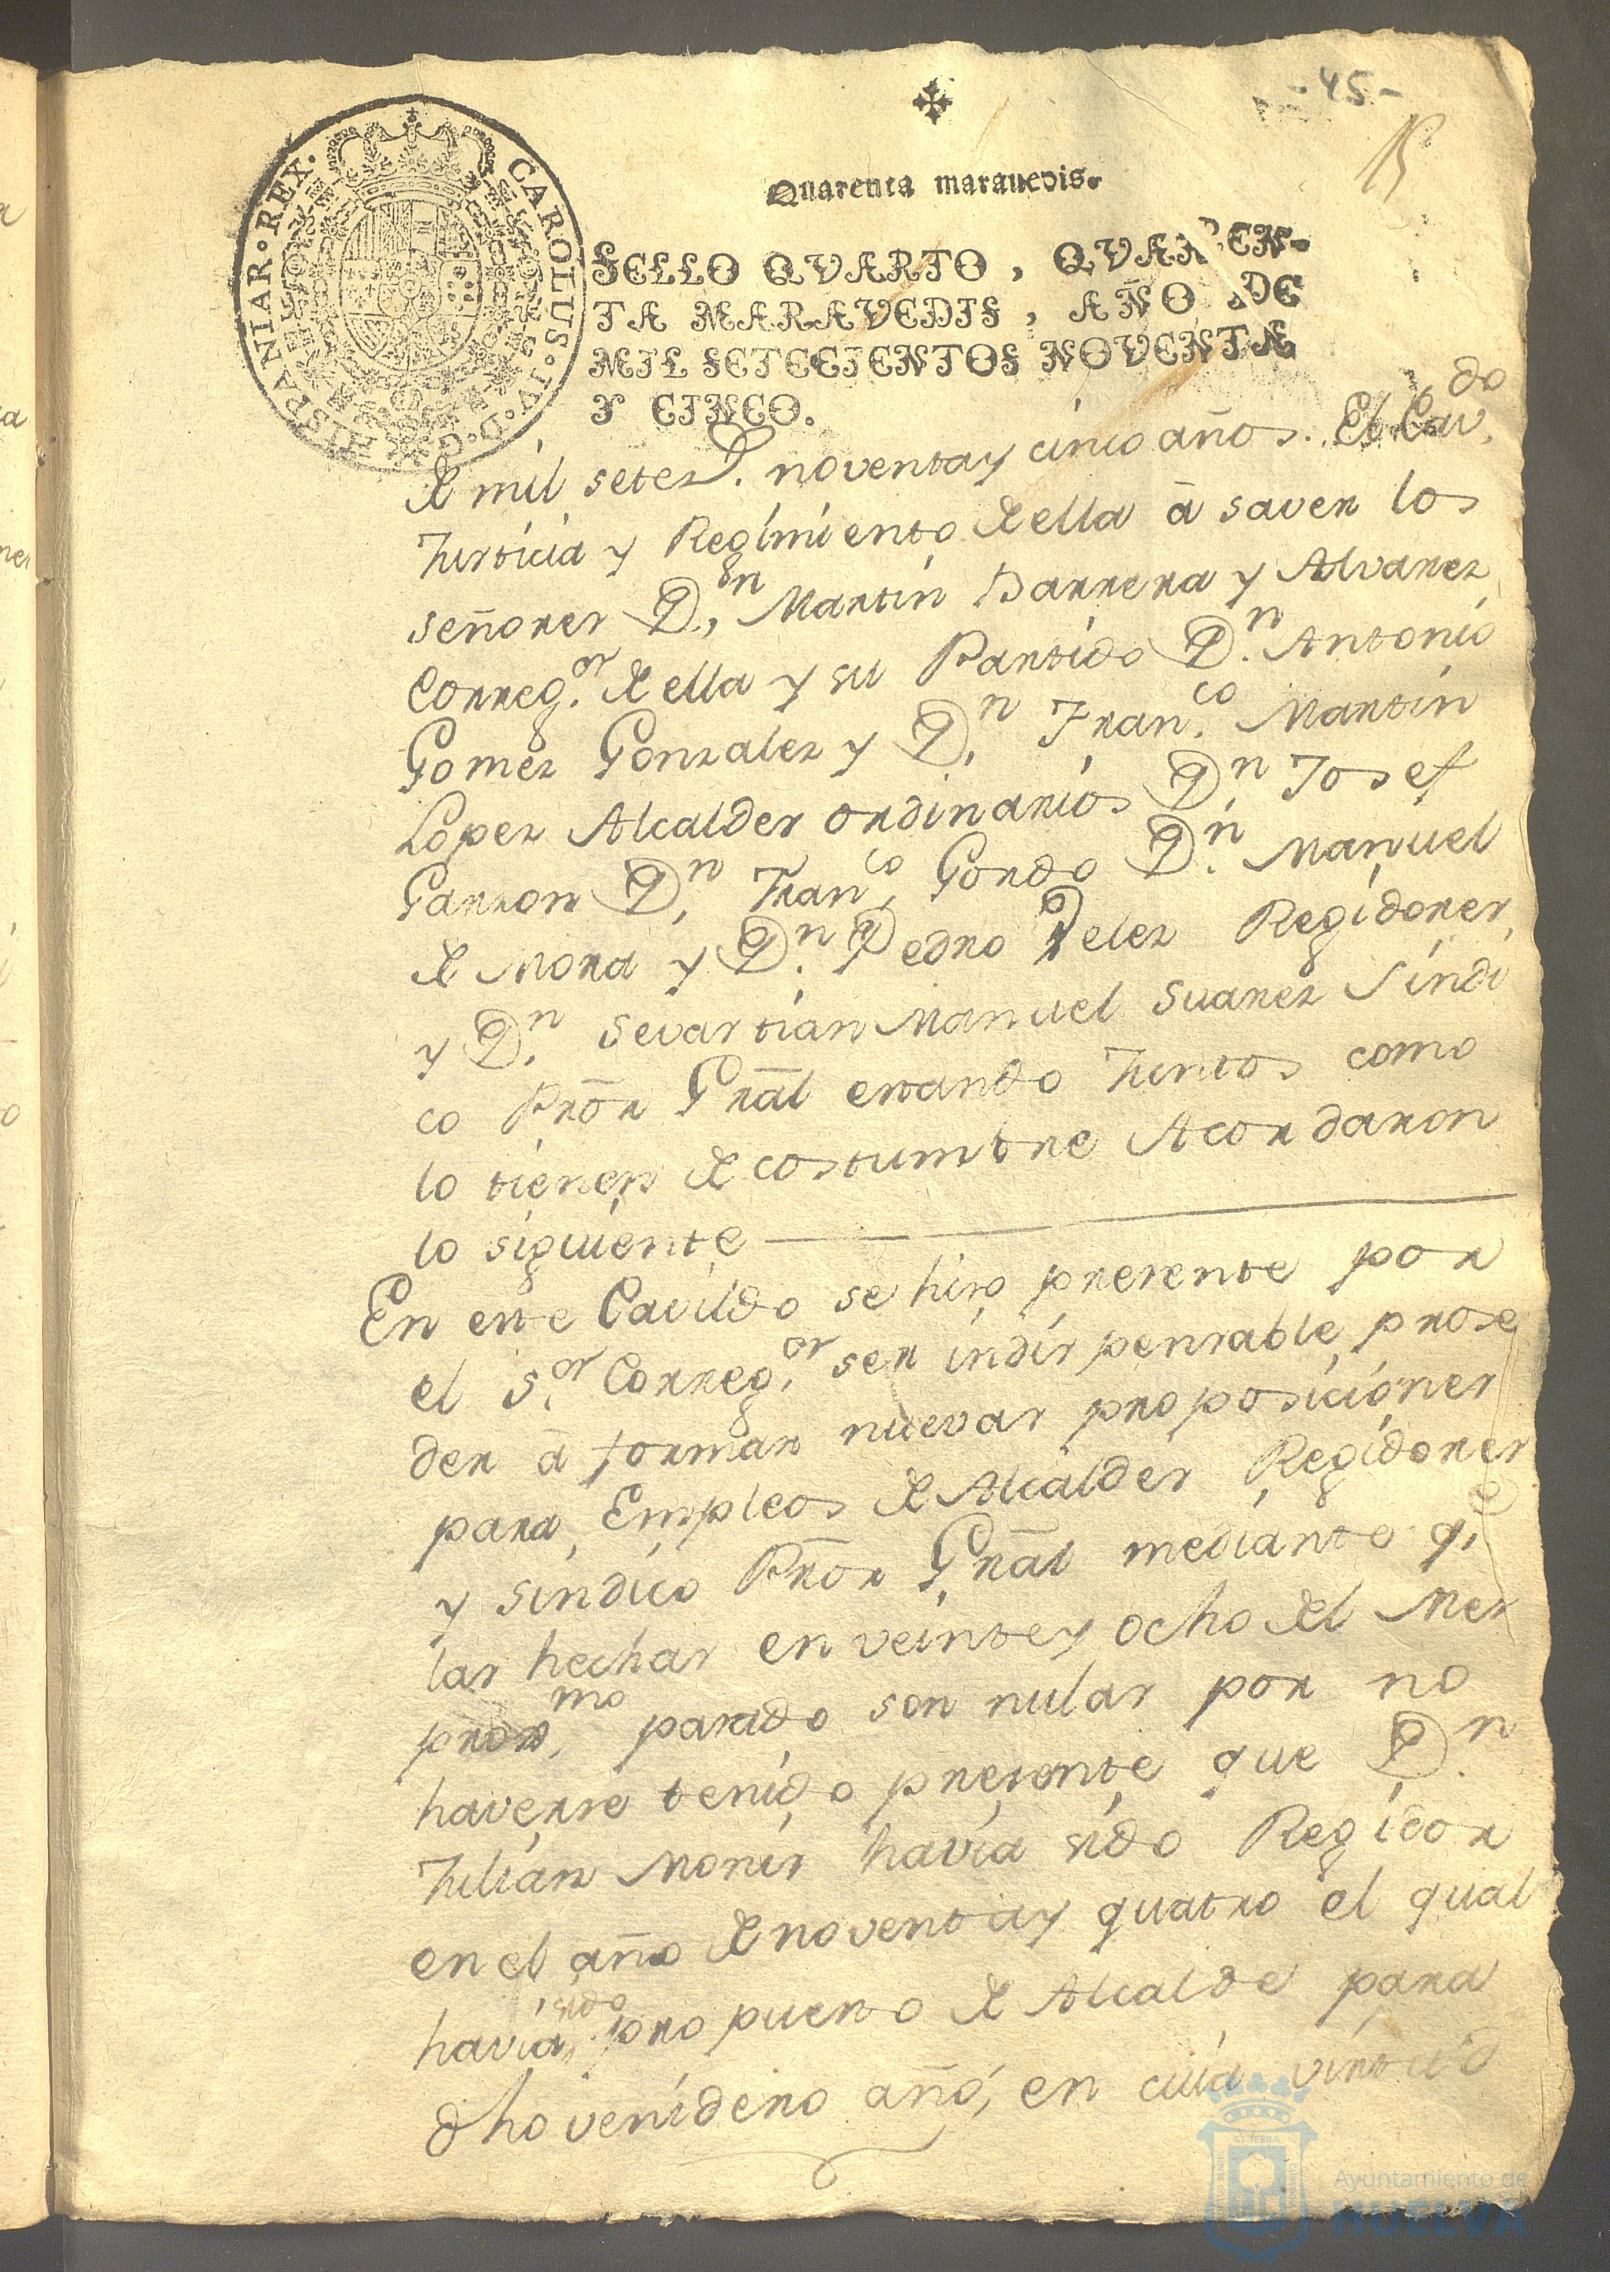 -45-
Quarenta marauedis.
SELLO QVARTO, QVAREN-
TA MARAVEDIS, AÑO DE
MIL SETECIENTOS NOVENTA
Y CINCO.
CAROLUS·IV·D·G·HISPANIAR·REX·
de mil setez.s noventa y cinco años. El Cav.do
Justicia y Regimiento de ella â saver los
señores D.n Martin Barrera y Alvarez
Correg.or de ella y su Partido D.n Antonio
Gomez Gonzalez y D.n Fran.co Martin
Lopez Alcaldes ordinarios D.n Josef
Garzon D.n Fran.co Gordo D.n Manuel
de Mora y D.n Pedro Velez Regidores,
y D.n Sevastian Manuel Suarez Sindi
co Prõr Grãl estando Juntos como
lo tienen de costumbre Acordaron
lo siguiente
En este Cavildo se hizo presente por
el S.or Correg.or ser indispensable prose
der â formar nuevas proposiciones
para Empleos de Alcaldes Regidores
y sindico Prõor Grãl mediante q.e
las hechas en veinte y ocho del Mes
prox.mo pasado son nulas por no
haverse tenido presente que D.n
Julian Monis havia sido Regidor
en el año de noventa y quatro el qual
havia sido propuesto de Alcalde para
dho venidero año, en cuia virtud
Ayuntamiento de
HUELVA